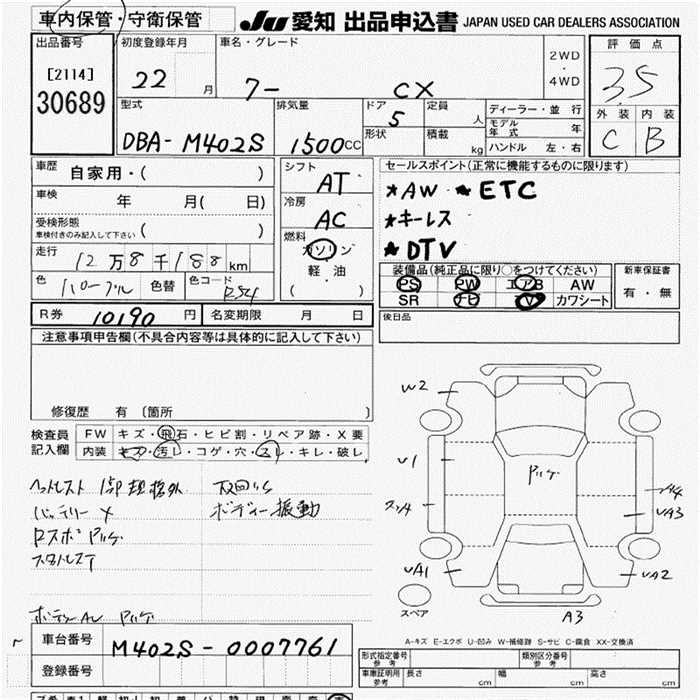 車内保管・守衛保管 JU 愛知 出品申込書 JAPAN USED CAR DEALERS ASSOCIATION
出品番号 初度登録年月 車名・グレード 2WD・4WD 評価点
[2114] 22 月 クー CX 35
30689
型式 排気量 ドア 定員 人 ディーラー・並行 外装 内装
DBA- M402S 1500cc 5 モデル年式 年 C B
形状 積載 kg ハンドル 左・右
車歴 自家用・( ) シフト AT セールスポイント(正常に機能するものに限ります)
車検 年 月( 日) 冷房 AC ★AW ★ETC
受検形態 ( ) ★キーレス
車検付きのみ記入して下さい 燃料 ガソリン ★DTV
走行 12万8千188km 軽油 装備品(純正品に限り○をつけてください) 新車保証書
色 パープル 色替 色コード ( ) PS PW エアB AW 有・無
SR ナビ TV カワシート
R券 10190円 名変期限 月 日 後日品
注意事項申告欄(不具合内容等は具体的に記入して下さい)
修復歴 有 [箇所 ]
検査員 FW キズ・飛石・ヒビ割・リペア跡・X要
記入欄 内装 キズ・汚レ・コゲ・穴・スレ・キレ・破レ
W2
U1
バッテリーX ボディー振動
A4
UA3
UA1
UA2
スペア
A3
車台番号 M402S-0007761
登録番号
A-キズ E-エクボ U-凹み W-補修跡 S-サビ C-腐食 XX-交換済
形式指定番号 参考 類別区分番号 参考
車庫証明用 参考 長さ cm 幅 cm 高さ cm